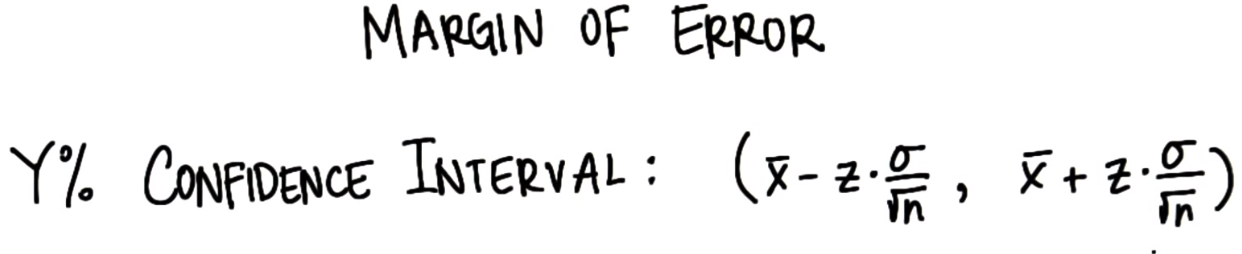 MARGIN OF ERROR
Y% CONFIDENCE INTERVAL: (x̄ - z·σ/√n, x̄ + z·σ/√n)